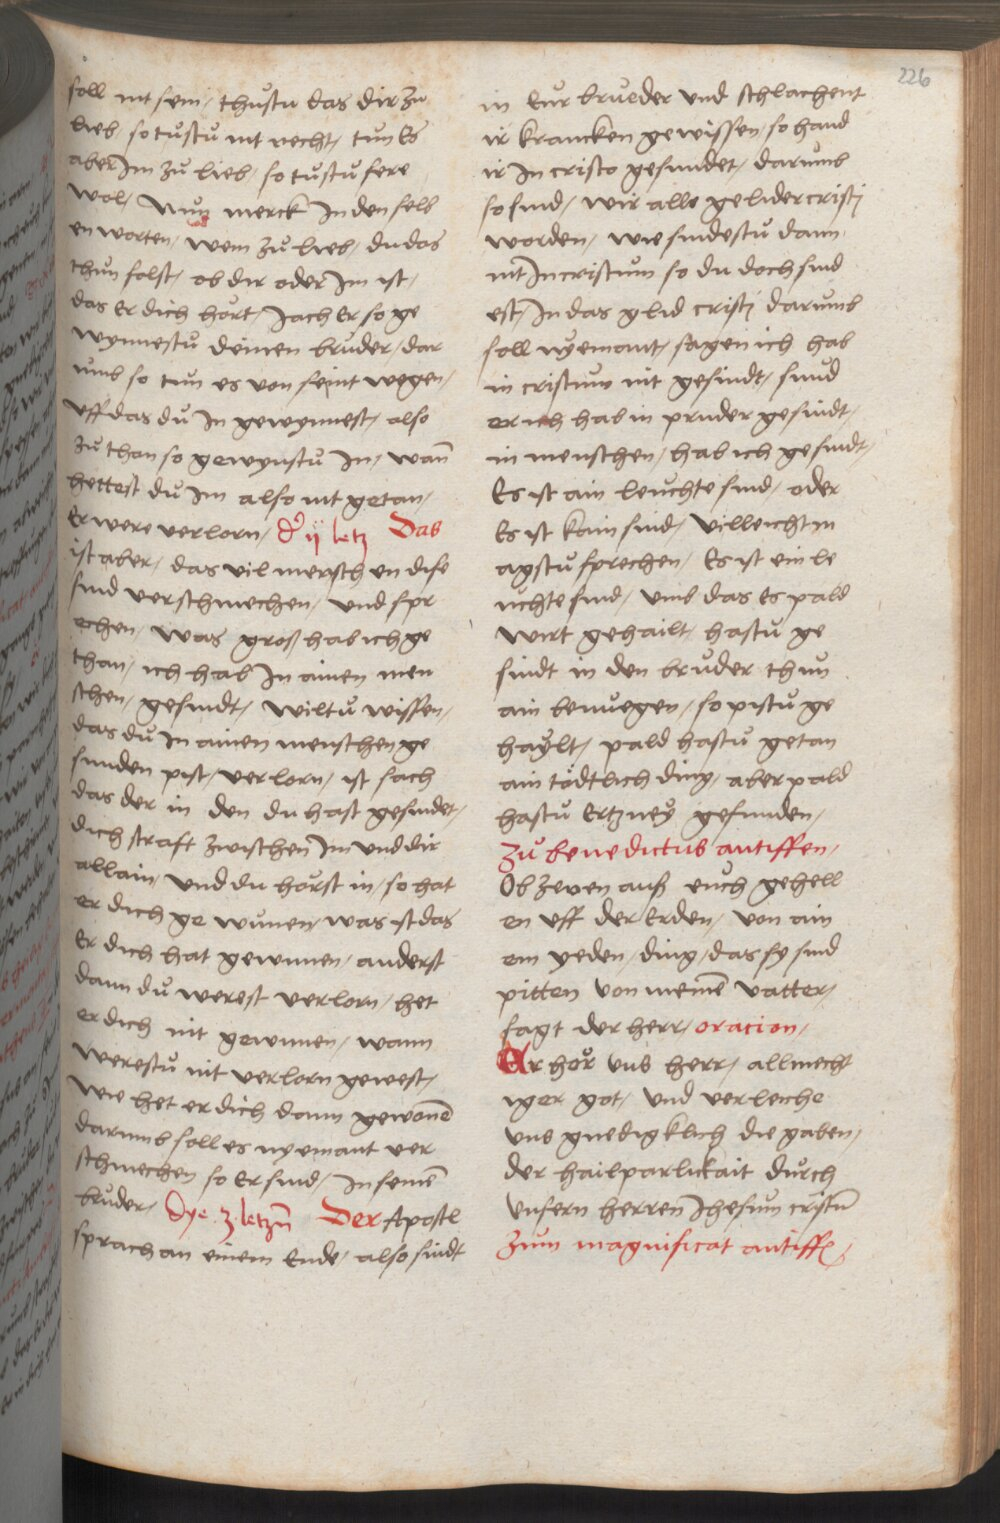 226
soll nit sein / thustu das dir zu
lieb / so tustu nit recht / tun Es
aber Im zu lieb / so tustu sere
wol / Nun merck In den selb
en worten / wem zu lieb / du das
thun solst / ob dir oder Im ist /
das Er dich hört / Jach Er so ge
wynnestu deinen bruder / dar
umb so tun es von seint wegen /
Uff das du In gewynnest / also
zu thon so gewynstu In / wan̄
hettest du Im also nit getan /
Er were verlorn / d' ij letz Das
ist aber / das vil mensch en dise
sind verschmechen / und spr
echen / was groß hab ich ge
than / ich hab In ainen men
schen / gesindt / wiltu wissen /
das du In ainen menschen ge
sunden pist / verlorn / ist sach
das der in den du hast gesindet /
dich straft zwischen Im und dir
allain / und du hörst in / so hat
er dich ge wunen / was ist das
Er dich hat gewunen / anderst
dann du werest verlorn / het
er dich nit gewunen / wann
werestu nit verlorn gewest /
wie het er dich dann gewonē
darumb soll es nyemant ver
schmechen so Er sind / In seinē
bruder / Dye .3. letzn̄ Der Apostl
sprach an einem Ende / also sindt
in Eur brueder und schlachent
ir krancken gewissen / so hand
ir In cristo gesundet / darumb
so sind / wir alle gelider cristi
worden / wie sindestu dann
nit In cristum so du doch sind
est / In das glid cristi darumb
soll nyemant / sagen ich hab
in cristum nit gesindt / sund
er ich hab in pruder gesindt /
in menschen / hab ich gesindt /
Es ist ain leuchte sind / oder
Es ist kain sind / villeicht m
agstu sprechen / Es ist ein le
uchte sind / umb das Es pald
wirt gehailt / hastu ge
sindt in den bruder thun
ain benuegen / so pistu ge
haylt / pald hastu getan
ain tödtlich ding / aber pald
hastu Ertzney gefunden /
Zu benedictus antiffen /
Ob zwen auß euch gehell
en uff der Erden / von ain
em yeden / ding / das sy sind
pitten von meinē vatter /
sagt der herr / oracion /
Er hör uns herr / allmecht
iger got / und verleiche
uns gnedigklich die gaben /
der hailparlickait durch
unsern herren Jhesum cristū
Zum magnificat antiff